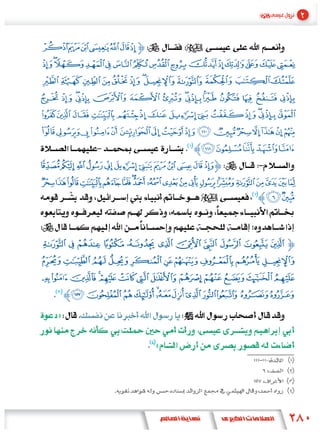 ٢ نزول عيسى
وأنعــم الله على عيســى، فقــال ﴿ إِذْ قَالَ اللَّهُ يَا عِيسَى ابْنَ مَرْيَمَ اذْكُرْ
نِعْمَتِي عَلَيْكَ وَعَلَى وَالِدَتِكَ إِذْ أَيَّدْتُكَ بِرُوحِ الْقُدُسِ تُكَلِّمُ النَّاسَ فِي الْمَهْدِ وَكَهْلًا وَإِذْ
عَلَّمْتُكَ الْكِتَابَ وَالْحِكْمَةَ وَالتَّوْرَاةَ وَالْإِنْجِيلَ وَإِذْ تَخْلُقُ مِنَ الطِّينِ كَهَيْئَةِ الطَّيْرِ
بِإِذْنِي فَتَنْفُخُ فِيهَا فَتَكُونُ طَيْرًا بِإِذْنِي وَتُبْرِئُ الْأَكْمَهَ وَالْأَبْرَصَ بِإِذْنِي وَإِذْ تُخْرِجُ
الْمَوْتَى بِإِذْنِي وَإِذْ كَفَفْتُ بَنِي إِسْرَائِيلَ عَنْكَ إِذْ جِئْتَهُمْ بِالْبَيِّنَاتِ فَقَالَ الَّذِينَ كَفَرُوا
مِنْهُمْ إِنْ هَذَا إِلَّا سِحْرٌ مُبِينٌ (١١٠) وَإِذْ أَوْحَيْتُ إِلَى الْحَوَارِيِّينَ أَنْ آمِنُوا بِي وَبِرَسُولِي قَالُوا
آمَنَّا وَاشْهَدْ بِأَنَّنَا مُسْلِمُونَ (١١١) ﴾(١). بشــارة عيســى بمحمــد -عليهمــا الصــلاة
والســلام- قــال: ﴿ وَإِذْ قَالَ عِيسَى ابْنُ مَرْيَمَ يَا بَنِي إِسْرَائِيلَ إِنِّي رَسُولُ اللَّهِ إِلَيْكُمْ مُصَدِّقًا
لِمَا بَيْنَ يَدَيَّ مِنَ التَّوْرَاةِ وَمُبَشِّرًا بِرَسُولٍ يَأْتِي مِنْ بَعْدِي اسْمُهُ أَحْمَدُ فَلَمَّا جَاءَهُمْ بِالْبَيِّنَاتِ قَالُوا هَذَا سِحْرٌ
مُبِينٌ (٦) ﴾(٢). فعيســى هــو خــاتم أنبياء بني إســرائيل، وقد بشــر قومه
بخــاتم الأنبيــاء جميعــاً، ونــوه باسمــه، وذكر لهــم صفته ليعرفــوه ويتابعوه
إذا شــاهدوه؛ إقامــة للحجــة عليهم وإحســاناً مــن الله إليهم كمــا قال
﴿ الَّذِينَ يَتَّبِعُونَ الرَّسُولَ النَّبِيَّ الْأُمِّيَّ الَّذِي يَجِدُونَهُ مَكْتُوبًا عِنْدَهُمْ فِي التَّوْرَاةِ
وَالْإِنْجِيلِ يَأْمُرُهُمْ بِالْمَعْرُوفِ وَيَنْهَاهُمْ عَنِ الْمُنْكَرِ وَيُحِلُّ لَهُمُ الطَّيِّبَاتِ وَيُحَرِّمُ
عَلَيْهِمُ الْخَبَائِثَ وَيَضَعُ عَنْهُمْ إِصْرَهُمْ وَالْأَغْلَالَ الَّتِي كَانَتْ عَلَيْهِمْ فَالَّذِينَ آمَنُوا بِهِ
وَعَزَّرُوهُ وَنَصَرُوهُ وَاتَّبَعُوا النُّورَ الَّذِي أُنْزِلَ مَعَهُ أُولَئِكَ هُمُ الْمُفْلِحُونَ (١٥٧) ﴾(٣).
وقد قال أصحاب رسول الله: يا رسول الله أخبرنا عن نفسك، قال: «دعوة
أبي إبراهيم وبشرى عيسى، ورأت أمي حين حملت بي كأنه خرج منها نور
أضاءت له قصور بصرى من أرض الشام»(٤).
(١) المائدة: ١١٠-١١١
(٢) الصف: ٦
(٣) الأعراف: ١٥٧
(٤) رواه أحمد، وقال الهيثمي في مجمع الزوائد: إسناده حسن وله شواهد تقويه.
٢٨٠ العلامات الكبرى نهاية العالم